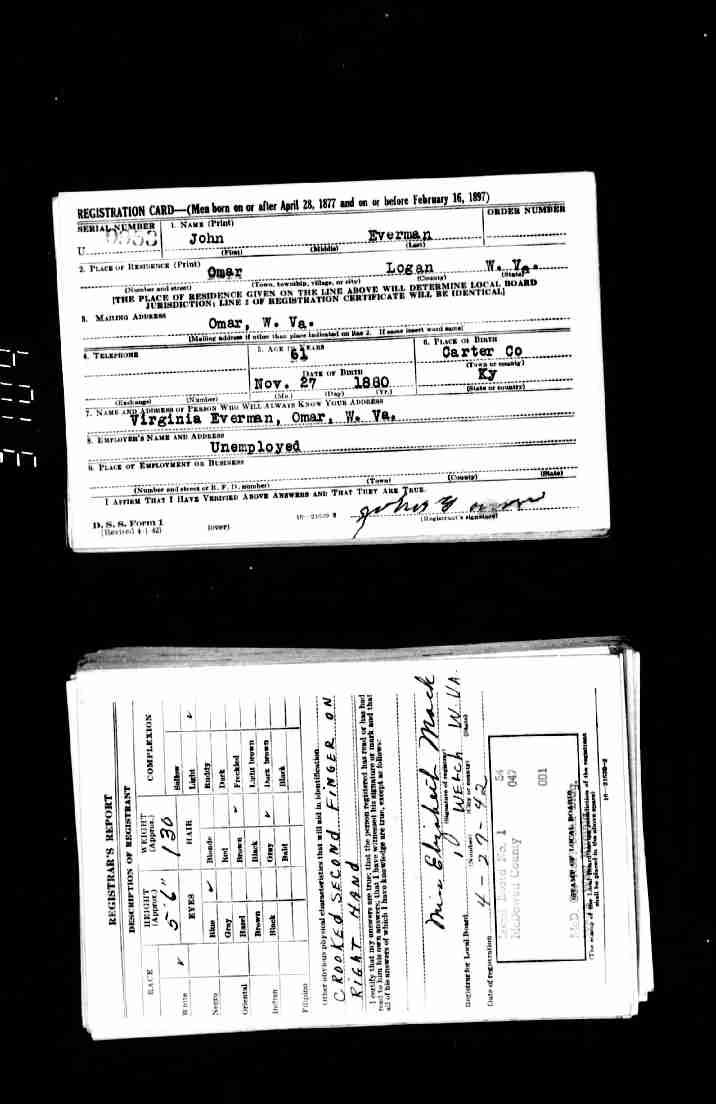 REGISTRATION CARD—(Men born on or after April 28, 1877 and on or before February 16, 1897)
SERIAL NUMBER 1. NAME (Print) ORDER NUMBER
U John Everman
(First) (Middle) (Last)
2. PLACE OF RESIDENCE (Print)
Omar Logan W. Va.
(Number and street) (Town, township, village, or city) (County) (State)
[THE PLACE OF RESIDENCE GIVEN ON THE LINE ABOVE WILL DETERMINE LOCAL BOARD
JURISDICTION; LINE 2 OF REGISTRATION CERTIFICATE WILL BE IDENTICAL]
3. MAILING ADDRESS
Omar, W. Va.
[Mailing address if other than place indicated on line 2. If same insert word same]
4. TELEPHONE 5. AGE IN YEARS 6. PLACE OF BIRTH
61 Carter Co
(Town or county)
DATE OF BIRTH
Nov. 27 1880 Ky
(Exchange) (Number) (Mo.) (Day) (Yr.) (State or country)
7. NAME AND ADDRESS OF PERSON WHO WILL ALWAYS KNOW YOUR ADDRESS
Virginia Everman, Omar, W. Va.
8. EMPLOYER'S NAME AND ADDRESS
Unemployed
9. PLACE OF EMPLOYMENT OR BUSINESS
(Number and street or R. F. D. number) (Town) (County) (State)
I AFFIRM THAT I HAVE VERIFIED ABOVE ANSWERS AND THAT THEY ARE TRUE.
D. S. S. Form 1
(Revised 4-1-42) (over) 16—21630-2 (Registrant's signature)
REGISTRAR'S REPORT
DESCRIPTION OF REGISTRANT
RACE HEIGHT (Approx.) WEIGHT (Approx.) COMPLEXION
5' 6" 130
White ✓ EYES HAIR Sallow
Light ✓
Negro Blue ✓ Blonde Ruddy
Gray Red Dark
Oriental Hazel Brown ✓ Freckled
Brown Black Light brown
Indian Black Gray ✓ Dark brown
Bald Black
Filipino
Other obvious physical characteristics that will aid in identification
CROOKED SECOND FINGER ON
RIGHT HAND
I certify that my answers are true; that the person registered has read or has had
read to him his own answers; that I have witnessed his signature or mark and that
all of his answers of which I have knowledge are true, except as follows:
Miss Elizabeth Mack
(Signature of registrar)
Registrar for Local Board 1 WELCH W. VA.
(Number) (City or county) (State)
Date of registration 4-27-42
Local Board No. 1 54
McDowell County 047
001
(STAMP OF LOCAL BOARD)
(The stamp of the Local Board having jurisdiction of the registrant
shall be placed in the above space)
16—21630-2